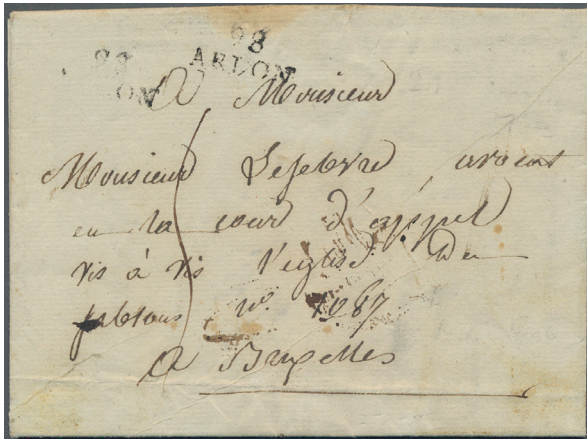 98
ARLON
98
ON
A Monsieur
Monsieur Lefebvre, avocat
en la cour d'appel
vis à vis l'eglise du
sablons n° 1087
A Bruxelles